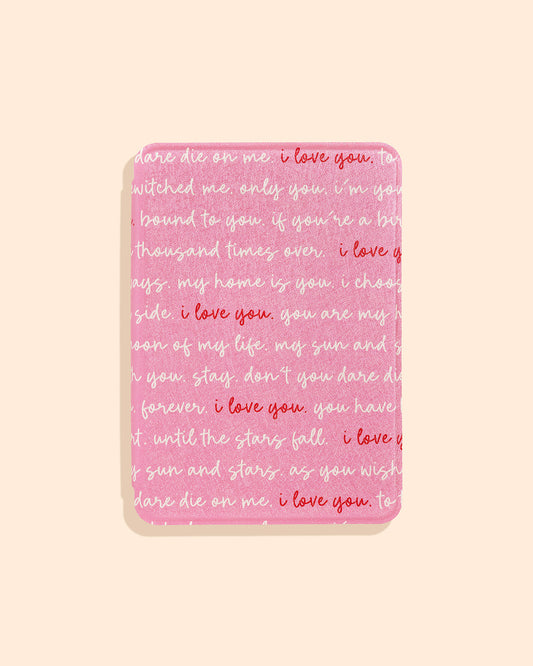 dare die on me. i love you. to
witched me. only you. i'm you
. bound to you. if you're a bir
thousand times over. i love y
ays. my home is you. i choos
side. i love you. you are my h
oon of my life. my sun and s
h you. stay. don't you dare die
. forever. i love you. you have
t. until the stars fall. i love y
y sun and stars. as you wish
dare die on me. i love you. to t